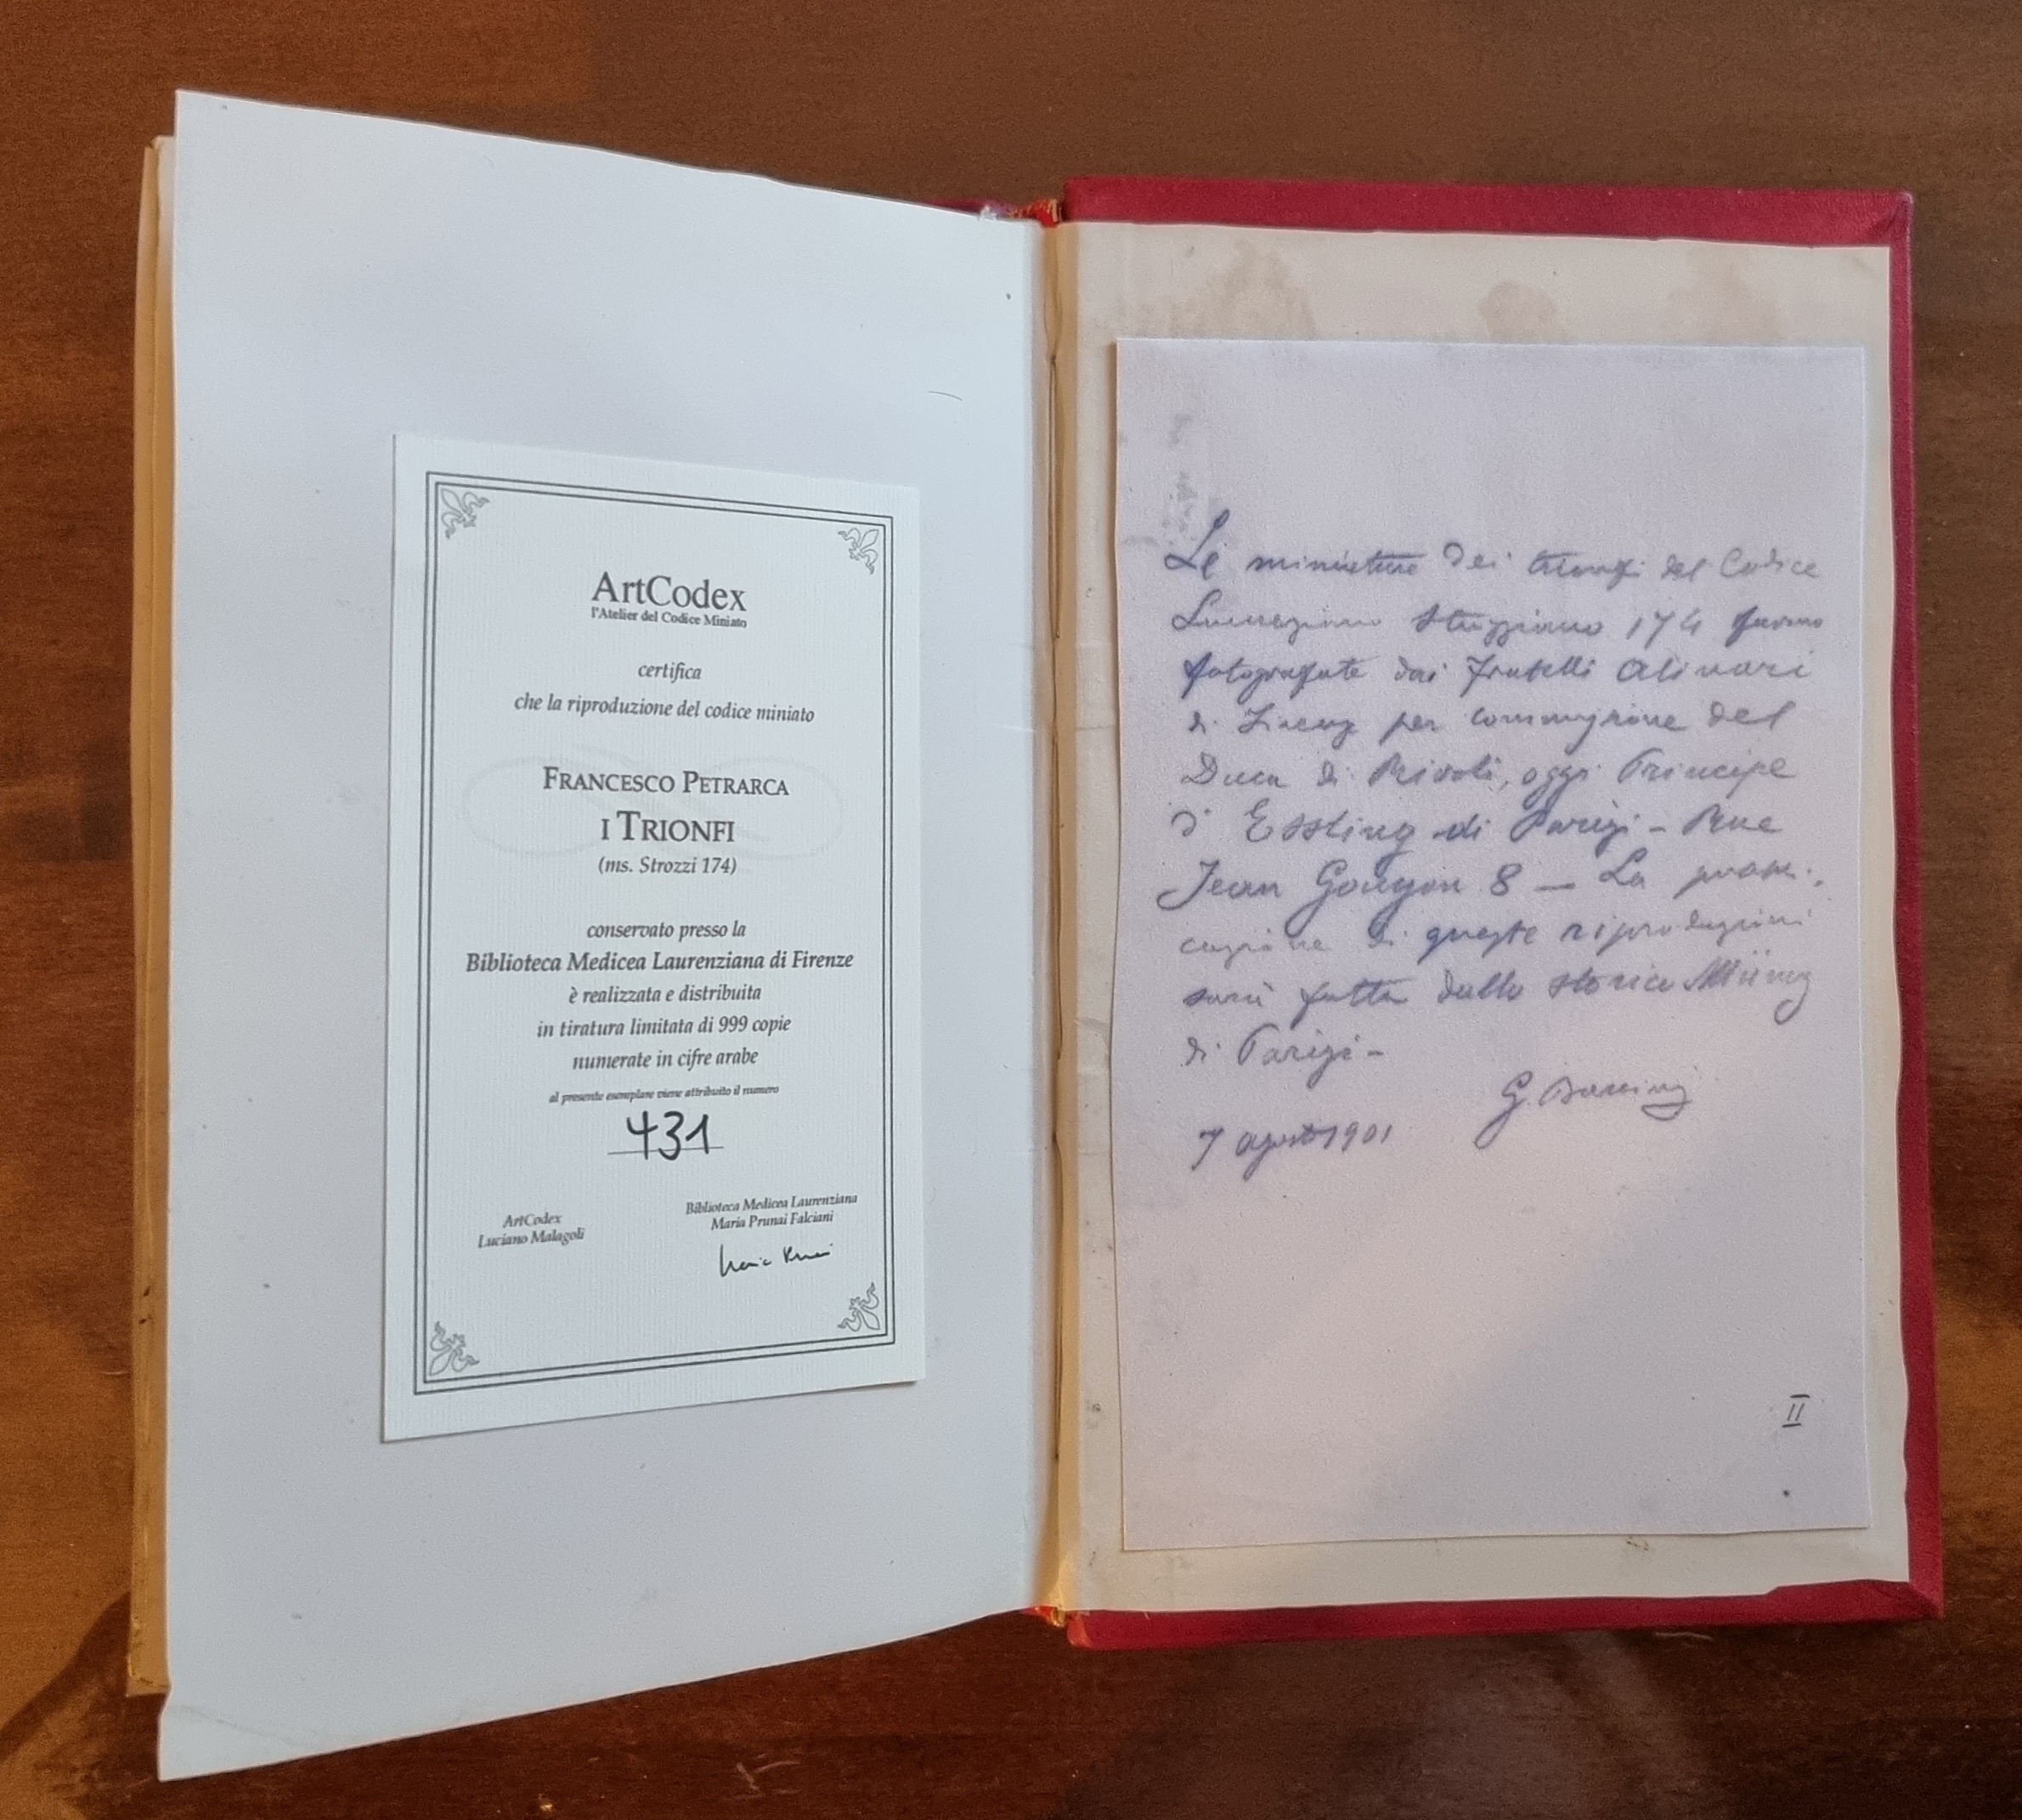 ArtCodex
l'Atelier del Codice Miniato
certifica
che la riproduzione del codice miniato
FRANCESCO PETRARCA
I TRIONFI
(ms. Strozzi 174)
conservato presso la
Biblioteca Medicea Laurenziana di Firenze
è realizzata e distribuita
in tiratura limitata di 999 copie
numerate in cifre arabe
al presente esemplare viene attribuito il numero
431
ArtCodex
Luciano Malagoli
Biblioteca Medicea Laurenziana
Maria Prunai Falciani
Le miniature dei trionfi del Codice
Laurenziano Strozziano 174 furono
fotografate dai fratelli Alinari
di Firenze per commissione del
Duca di Rivoli, oggi Principe
d'Essling di Parigi - Rue
Jean Goujon 8 — La
di queste riproduzioni
sarà fatta dallo storico Müntz
di Parigi -
G.
7 agosto 1901
II